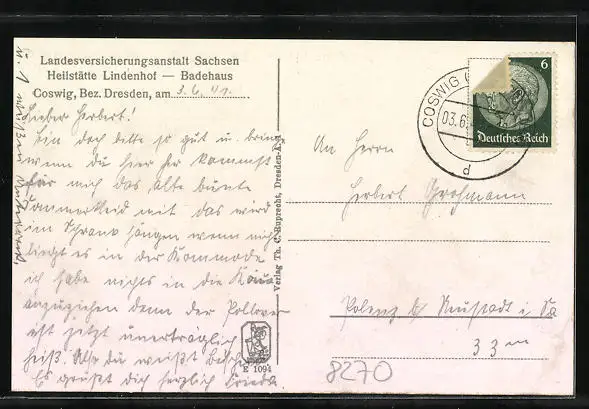 Landesversicherungsanstalt Sachsen
Heilstätte Lindenhof — Badehaus
Coswig, Bez. Dresden, am 3. 6. 41.
Lieber Herbert!
Sei doch bitte so gut u. bring
wenn du hier her kommst
für mich das alte bunte
Sommerkleid mit das wird
im Schrank hängen wenn nicht
liegt es in der Kommode
ich habe nichts in die
anzuziehen denn der Pullover
ist jetzt unerträglich
heiß. Also du weißt Bescheid
Es grüßt dich herzlich Frieda
u. 1
Verlag Th. C. Ruprecht, Dresden-A.
E 1094
COSWIG
03.6.
d
6
Deutsches Reich
An Herrn
Herbert Grohmann
Polenz b/ Neustadt i. Sa
33 m
8270